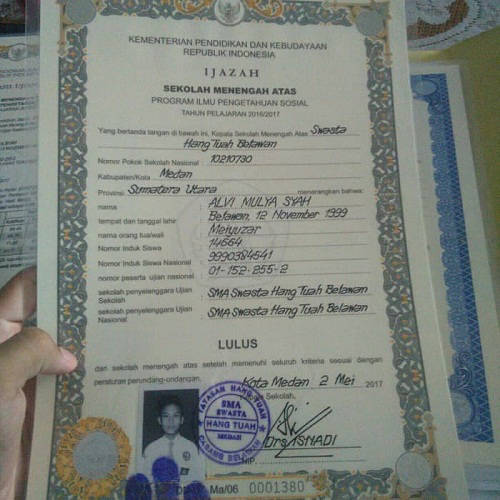 KEMENTERIAN PENDIDIKAN DAN KEBUDAYAAN
REPUBLIK INDONESIA
IJAZAH
SEKOLAH MENENGAH ATAS
PROGRAM ILMU PENGETAHUAN SOSIAL
TAHUN PELAJARAN 2016/2017
Yang bertanda tangan di bawah ini, Kepala Sekolah Menengah Atas Swasta
Hang Tuah Belawan
Nomor Pokok Sekolah Nasional : 10210730
Kabupaten/Kota : Medan
Provinsi Sumatera Utara menerangkan bahwa:
nama : ALVI MULYA SYAH
tempat dan tanggal lahir : Belawan, 12 November 1999
nama orang tua/wali : Meiyuzar
Nomor Induk Siswa : 14664
Nomor Induk Siswa Nasional : 9990384541
nomor peserta ujian nasional : 01-152-255-2
sekolah penyelenggara Ujian : SMA Swasta Hang Tuah Belawan
Sekolah
sekolah penyelenggara Ujian : SMA Swasta Hang Tuah Belawan
Nasional
LULUS
dari sekolah menengah atas setelah memenuhi seluruh kriteria sesuai dengan
peraturan perundang-undangan.
Kota Medan 2 Mei 2017
Sekolah,
YAYASAN HANG TUAH
SMA
SWASTA
HANG TUAH
MEDAN
CABANG BELAWAN
Drs. ISNADI
NIP.
Ma/06 0001380